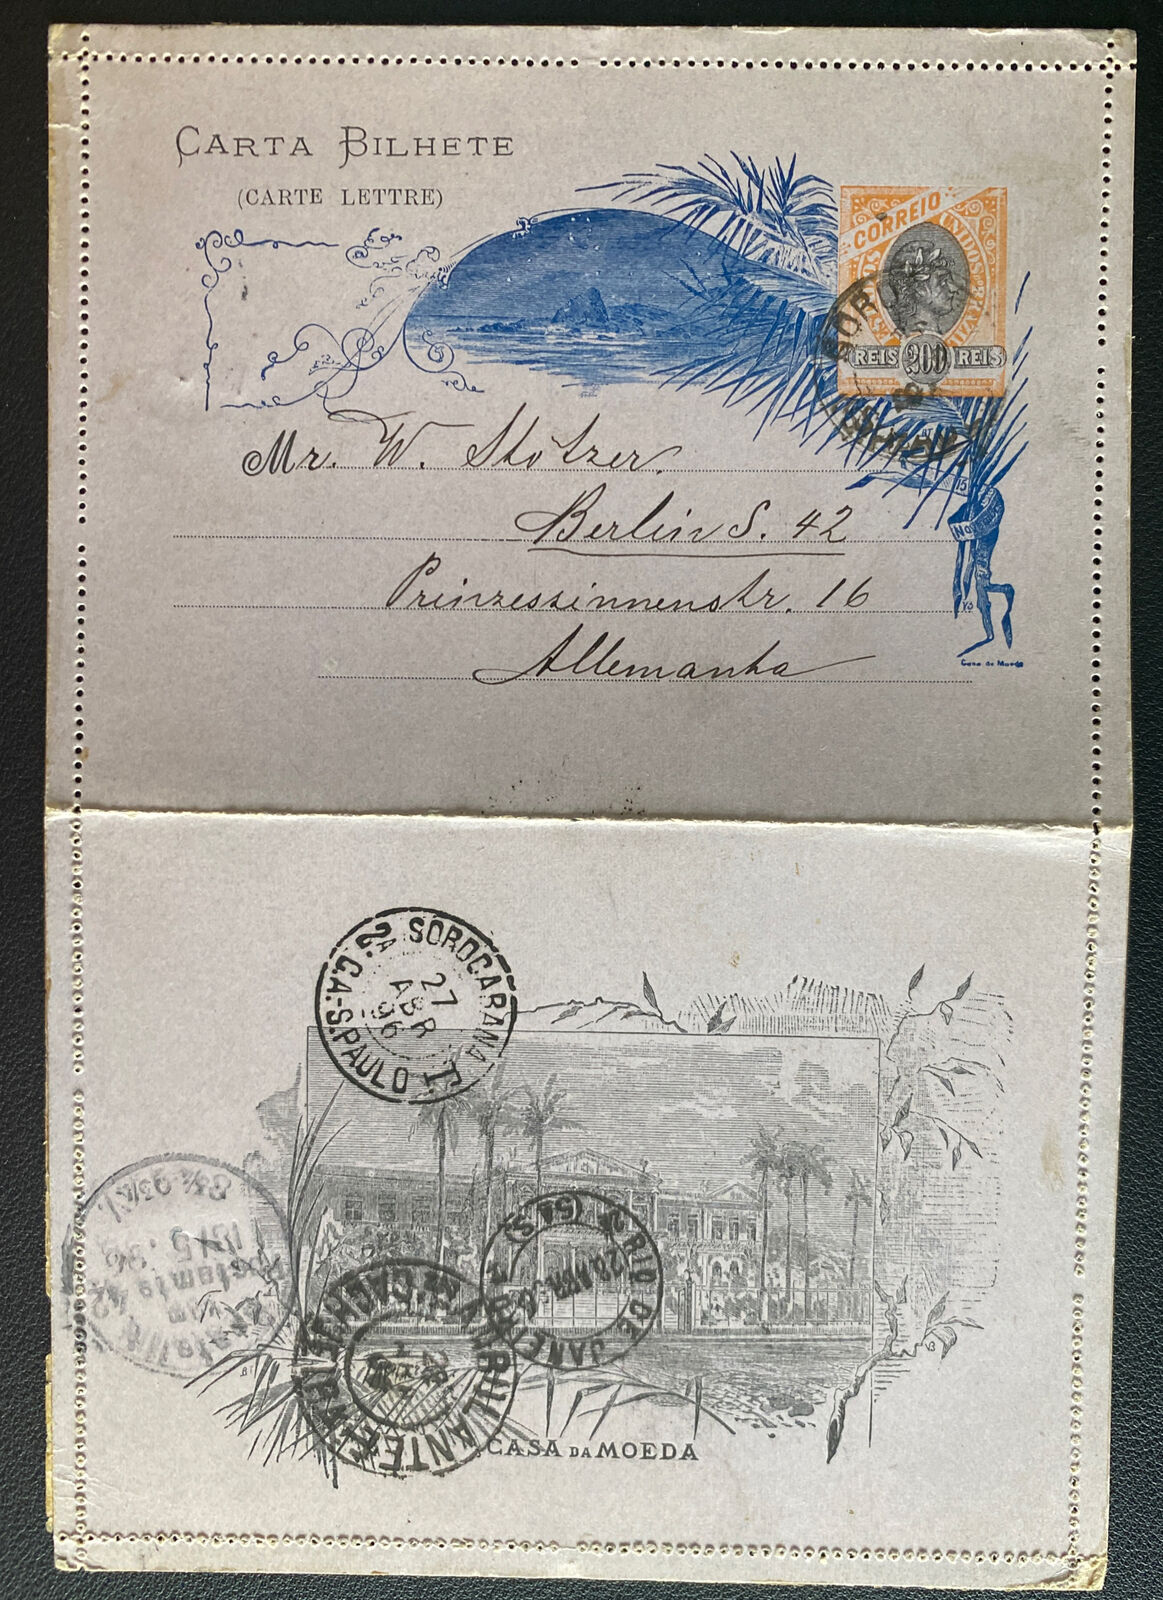 CARTA BILHETE
(CARTE LETTRE)
CORREIO
REIS 200 REIS
Mr. W. Stötzer.
Berlin S. 42
Prinzessinnenstr. 16
Allemanha
15
Casa da Moeda
SOROCABANA
2ª C.A-S.PAULO
27
ABR
96
RIO DE JANEIRO
28 ABR
AMBULANTE
CASA DA MOEDA